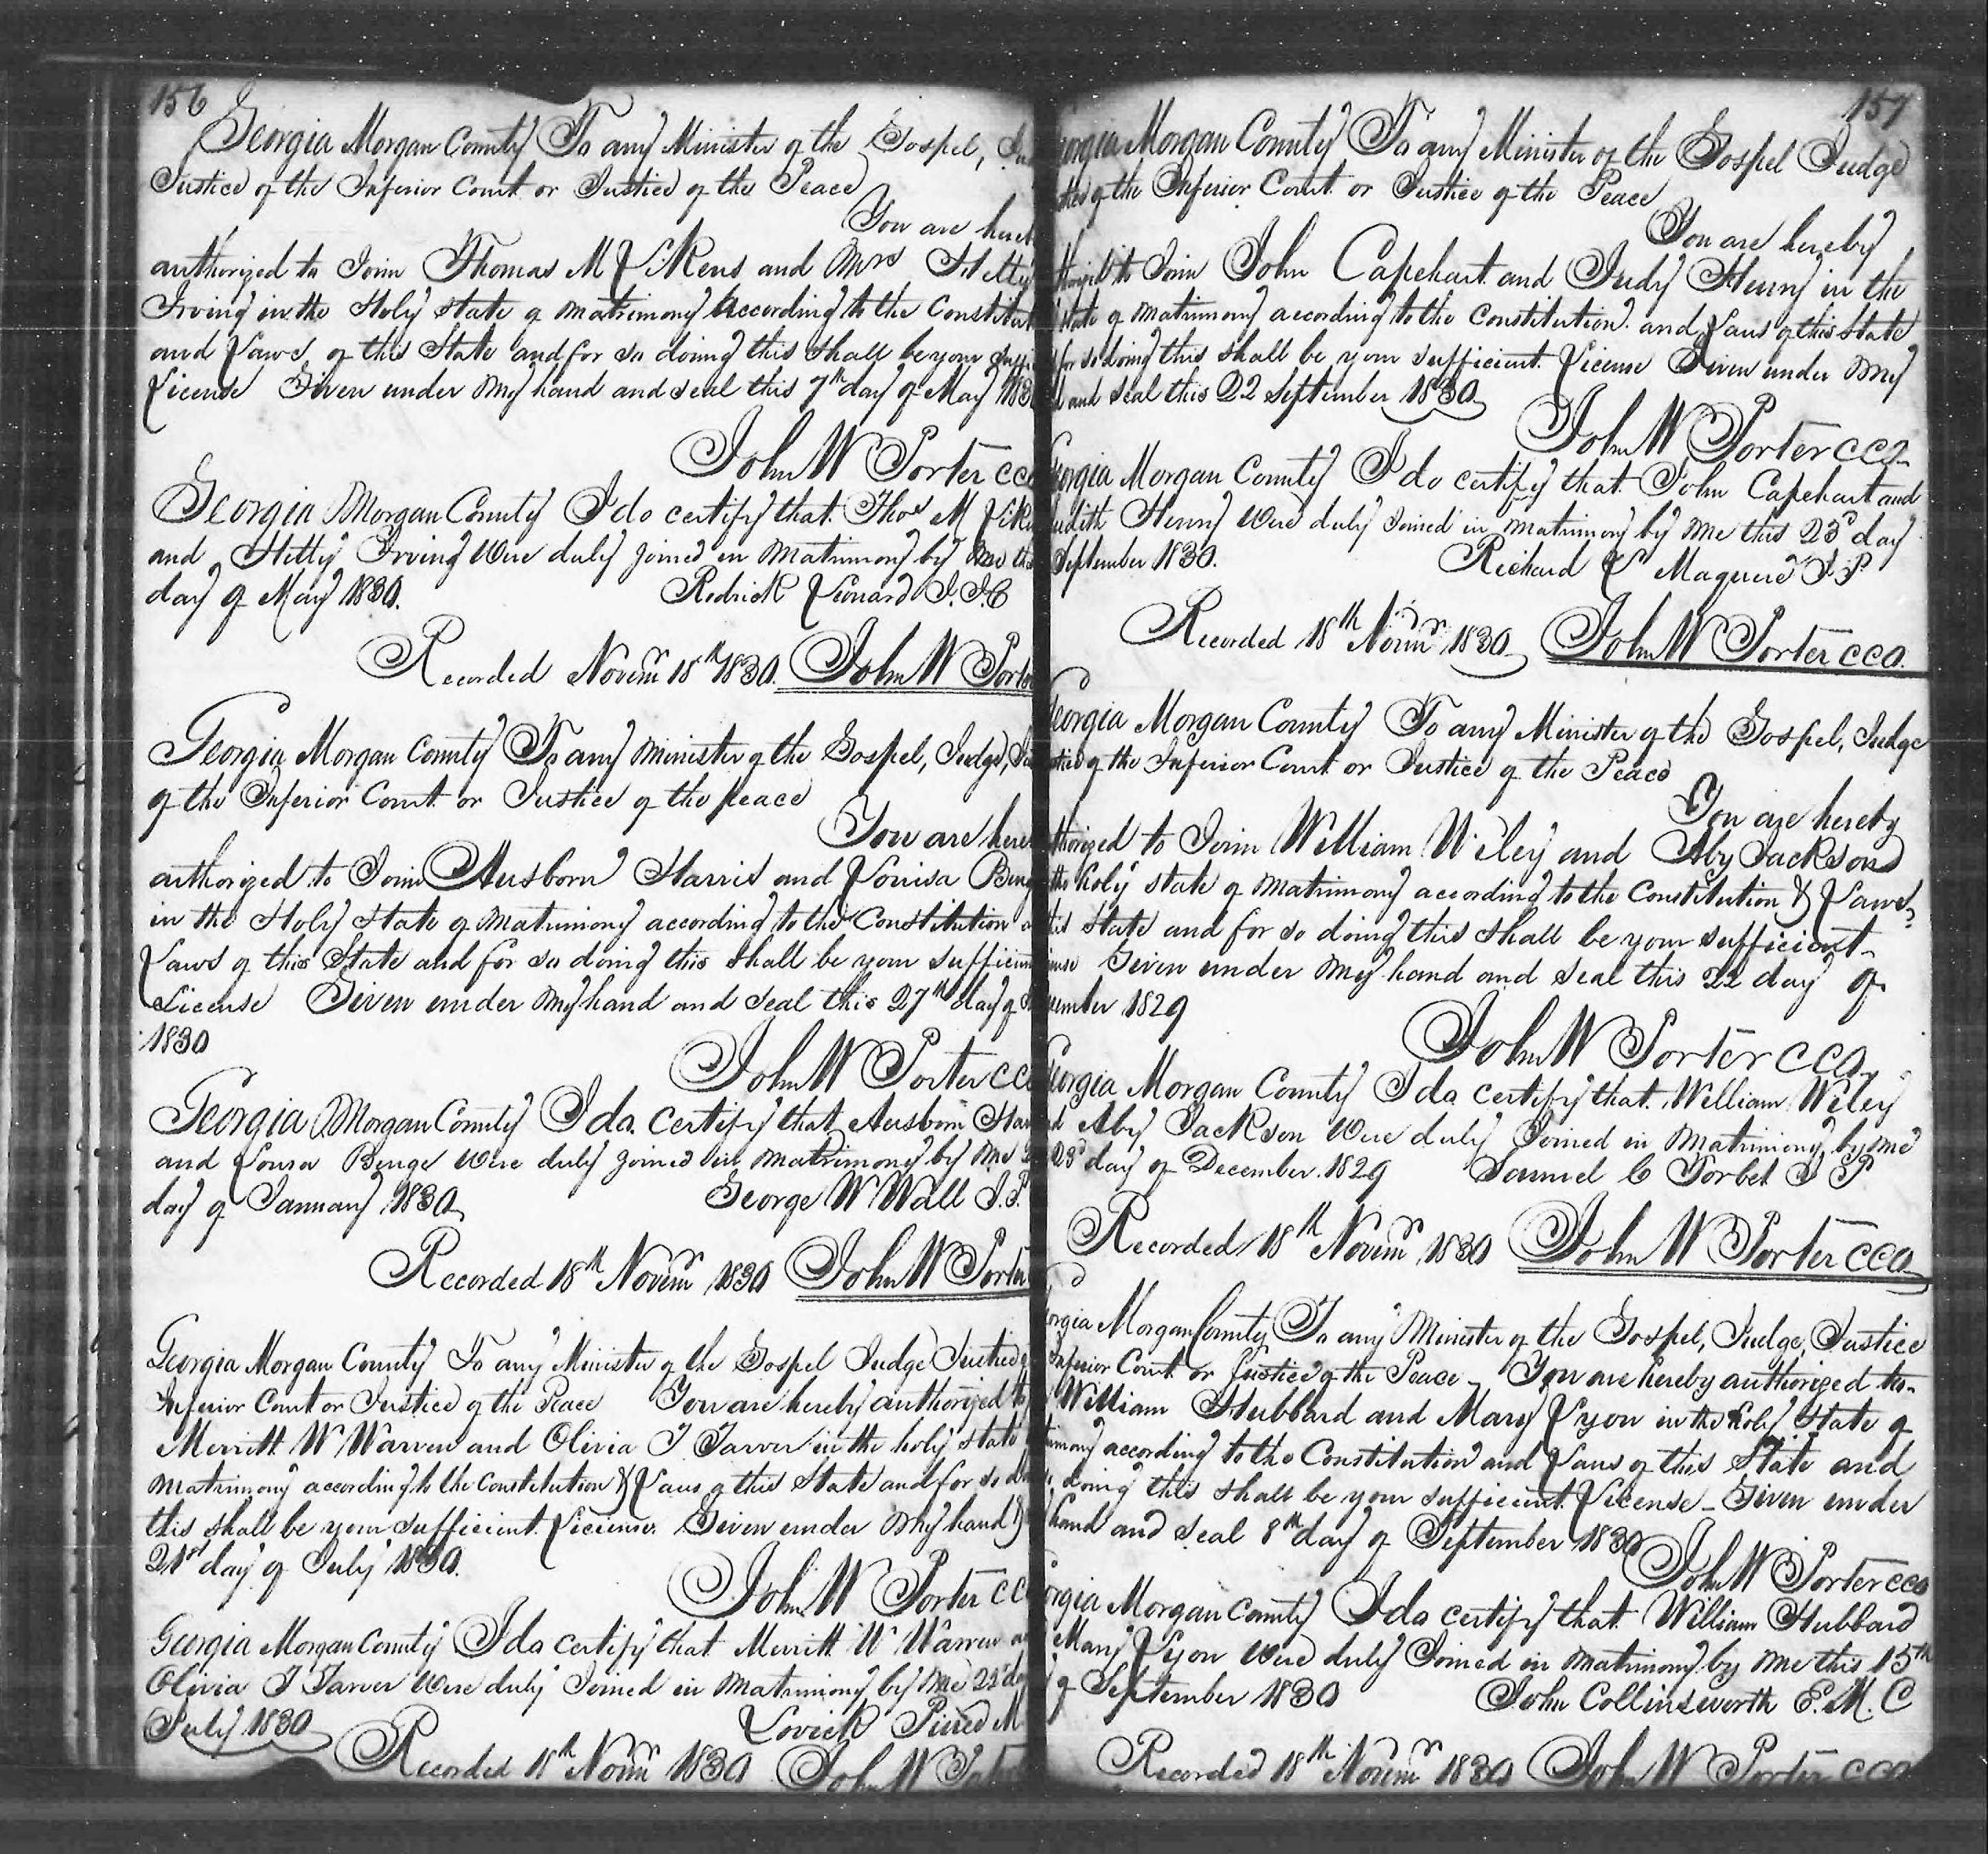 156
Georgia Morgan County To any Minister of the Gospel,
Justice of the Inferior Court or Justice of the Peace
You are
authorized to Join Thomas M and Mrs Hetty
Irving in the Holy state of matrimony according to the
and Laws of this State and for so doing this shall be your
License Given under my hand and seal this 7th day of May
John W Porter
Georgia Morgan County I do certify that Thos M
and Hetty Irving were duly joined in matrimony by me
day of May 1830. Redrick Leonard J.I.C
Recorded Novemr 18th 1830. John W
Georgia Morgan County To any Minister of the Gospel, Judge,
of the Inferior Court or Justice of the peace
You are
authorized to Join Ausborn Harris and Louisa
in the Holy State of matrimony according to the Constitution
Laws of this State and for so doing this shall be your
License Given under my hand and seal this 27th day of
1830
John W Porter
Georgia Morgan County I do certify that Ausborn
and Lousa Benge were duly joined in matrimony by me
day of January 1830 George W Wall J.P.
Recorded 18th Novemr 1830 John W Porter
Georgia Morgan County To any Minister of the Gospel Judge Justice
Inferior Court or Justice of the Peace You are hereby authorized to
Merritt W Warren and Olivia T Tarver in the holy state
matrimony according to the Constitution & Laws of this State and for so
this shall be your sufficient License. Given under my hand &
21st day of July 1830.
John W Porter
Georgia Morgan County I do certify that Merritt W Warren
Olivia T Tarver were duly Joined in matrimony by me
July 1830 Lovick Pierce M
Recorded 18th Novr 1830 John W
157
Morgan County To any Minister of the Gospel Judge
of the Inferior Court or Justice of the Peace
You are hereby
to Join John Capehart and Judy Henny in the
state of matrimony according to the Constitution and Laws of this State
for so doing this shall be your sufficient License Given under my
and seal this 22 September 1830
John W Porter CCO
Morgan County I do certify that John Capehart and
Judith Henny were duly Joined in matrimony by me this 23d day
September 1830. Richard Maguire J.P.
Recorded 18th Novemr 1830 John W Porter CCO
Georgia Morgan County To any Minister of the Gospel, Judge
of the Inferior Court or Justice of the Peace
You are hereby
to Join William Wiley and Aby Jackson
the holy state of matrimony according to the Constitution & Laws
State and for so doing this shall be your sufficient
Given under my hand and seal this 22 day of
1829
John W Porter CCO
Georgia Morgan County I do certify that William Wiley
Aby Jackson were duly Joined in matrimony by me
23d day of December 1829 Samuel C Torbet J P
Recorded 18th Novemr 1830 John W Porter CCO
Morgan County To any Minister of the Gospel, Judge, Justice
Inferior Court or Justice of the Peace - You are hereby authorized to
William Hubbard and Mary Lyon in the holy State of
according to the Constitution and Laws of this State and
doing this shall be your sufficient License - Given under
hand and seal 8th day of September 1830
John W Porter CCO
Morgan County I do certify that William Hubbard
Mary Lyon were duly Joined in matrimony by me this 15th
of September 1830 John Collinsworth E.M.C
Recorded 18th Novemr 1830 John W Porter CCO